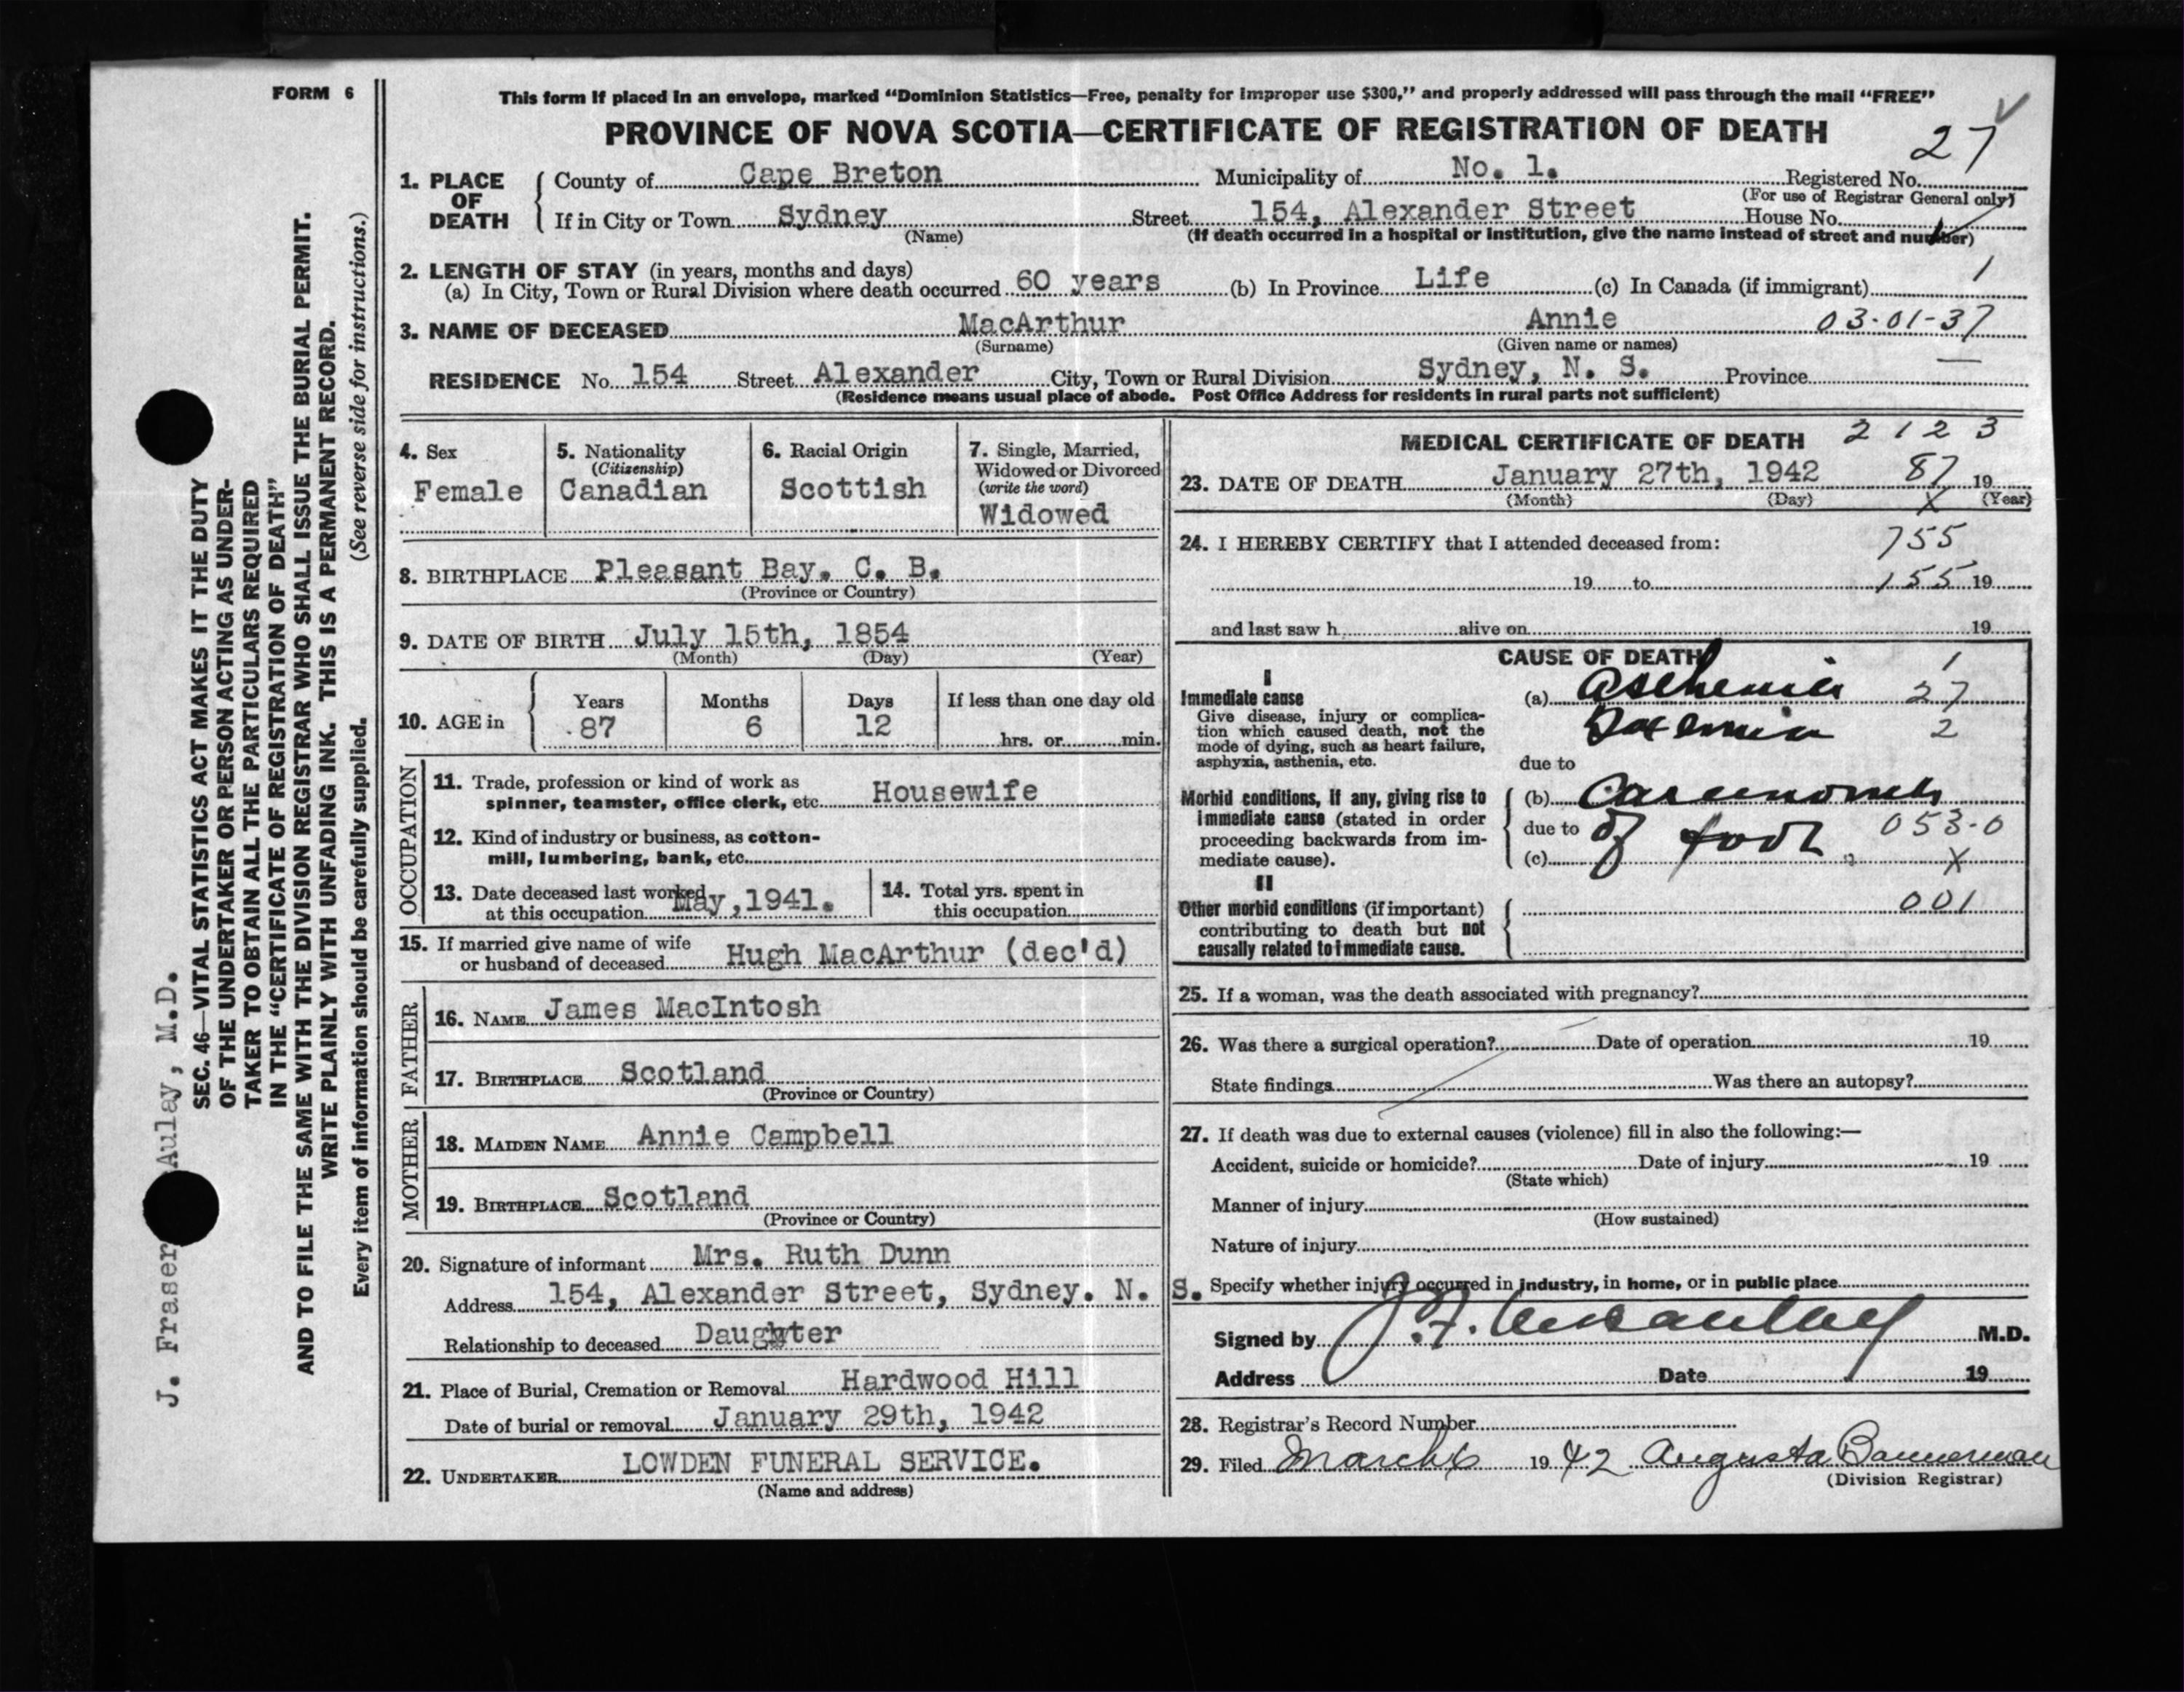 FORM 6
This form if placed in an envelope, marked "Dominion Statistics—Free, penalty for improper use $300," and properly addressed will pass through the mail "FREE"
PROVINCE OF NOVA SCOTIA—CERTIFICATE OF REGISTRATION OF DEATH
27
1. PLACE OF DEATH
County of Cape Breton Municipality of No. 1. Registered No.
(For use of Registrar General only)
If in City or Town Sydney Street 154, Alexander Street House No.
(Name) (If death occurred in a hospital or institution, give the name instead of street and number)
2. LENGTH OF STAY (in years, months and days)
(a) In City, Town or Rural Division where death occurred 60 years (b) In Province Life (c) In Canada (if immigrant) 1
3. NAME OF DECEASED MacArthur Annie 03-01-37
(Surname) (Given name or names)
RESIDENCE No. 154 Street Alexander City, Town or Rural Division Sydney, N. S. Province
(Residence means usual place of abode. Post Office Address for residents in rural parts not sufficient)
4. Sex
Female
5. Nationality
(Citizenship)
Canadian
6. Racial Origin
Scottish
7. Single, Married,
Widowed or Divorced
(write the word)
Widowed
8. BIRTHPLACE Pleasant Bay. C. B.
(Province or Country)
9. DATE OF BIRTH July 15th, 1854
(Month) (Day) (Year)
10. AGE in
Years Months Days If less than one day old
87 6 12 hrs. or min.
OCCUPATION
11. Trade, profession or kind of work as
spinner, teamster, office clerk, etc. Housewife
12. Kind of industry or business, as cotton-
mill, lumbering, bank, etc.
13. Date deceased last worked
at this occupation May, 1941.
14. Total yrs. spent in
this occupation
15. If married give name of wife
or husband of deceased Hugh MacArthur (dec'd)
FATHER
16. NAME James MacIntosh
17. BIRTHPLACE Scotland
(Province or Country)
MOTHER
18. MAIDEN NAME Annie Campbell
19. BIRTHPLACE Scotland
(Province or Country)
20. Signature of informant Mrs. Ruth Dunn
Address 154, Alexander Street, Sydney. N. S.
Relationship to deceased Daughter
21. Place of Burial, Cremation or Removal Hardwood Hill
Date of burial or removal January 29th, 1942
22. UNDERTAKER LOWDEN FUNERAL SERVICE.
(Name and address)
MEDICAL CERTIFICATE OF DEATH 2 1 2 3
23. DATE OF DEATH January 27th, 1942 87 19
(Month) (Day) X (Year)
24. I HEREBY CERTIFY that I attended deceased from: 755
19 to 155 19
and last saw h alive on 19
CAUSE OF DEATH
I 1
Immediate cause (a) Asthenia 27
Give disease, injury or complica-
tion which caused death, not the
mode of dying, such as heart failure,
asphyxia, asthenia, etc.
Toxemia 2
due to
Morbid conditions, if any, giving rise to
immediate cause (stated in order
proceeding backwards from im-
mediate cause).
(b) Carcinoma
due to of foot 053-0
(c) X
II
Other morbid conditions (if important)
contributing to death but not
causally related to immediate cause.
001
25. If a woman, was the death associated with pregnancy?
26. Was there a surgical operation? Date of operation 19
State findings Was there an autopsy?
27. If death was due to external causes (violence) fill in also the following:—
Accident, suicide or homicide? Date of injury 19
(State which)
Manner of injury
(How sustained)
Nature of injury
Specify whether injury occurred in industry, in home, or in public place
Signed by J. F. M.D.
Address Date 19
28. Registrar's Record Number
29. Filed March 6 19 42 Augusta Bannerman
(Division Registrar)
J. Fraser Aulay, M.D.
SEC. 46—VITAL STATISTICS ACT MAKES IT THE DUTY
OF THE UNDERTAKER OR PERSON ACTING AS UNDER-
TAKER TO OBTAIN ALL THE PARTICULARS REQUIRED
IN THE "CERTIFICATE OF REGISTRATION OF DEATH"
AND TO FILE THE SAME WITH THE DIVISION REGISTRAR WHO SHALL ISSUE THE BURIAL PERMIT.
WRITE PLAINLY WITH UNFADING INK. THIS IS A PERMANENT RECORD.
Every item of information should be carefully supplied. (See reverse side for instructions.)